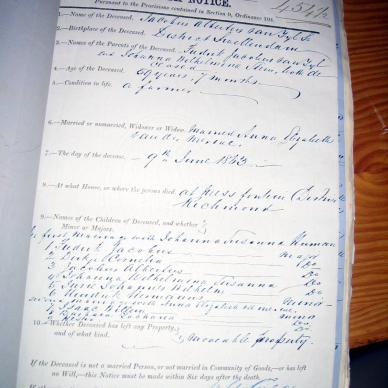 NOTICE.
Pursuant to the Provisions contained in Section 9, Ordinance 104,
1.—Name of the Deceased. Jacobus Albertus van Zyl
2.—Birthplace of the Deceased. District Swellendam
3.—Names of the Parents of the Deceased. Fredrik Jacobus van Zyl
and Johanna Wilhelmina
4.—Age of the Deceased. 69 years 7 months
5.—Condition in life. a farmer
6.—Married or unmarried, Widower or Widow. Married Anna Elizabeth
van der Merwe
7.—The day of the decease. 9th June 1863
8.—At what House, or where the person died. at fontein
Richmond
9.—Names of the Children of Deceased, and whether
Minor or Majors.
first Marriage with Johanna Susanna Human
1 Fredrik Jacobus major
2 Cornelia do
3 Jacobus Albertus do
4 Johanna Wilhelmina Susanna do
5 Johannes Wilhelm do
6 Hendrik Hermanus minor
Marriage with Anna Elizabeth
Willem minor
10.—Whether Deceased has left any Property,
and of what kind. Moveable property.
If the Deceased is not a married Person, or not married in Community of Goods, or has left
no Will,—this Notice must be made within Six days after the death.